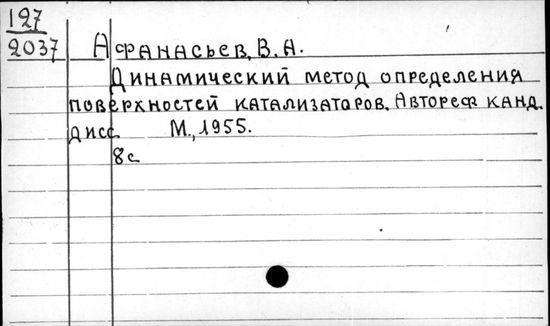 127
2037 Афанасьев, В. А.
Динамический метод определения
поверхностей катализаторов. Автореф канд.
дисс М., 1955.
8с